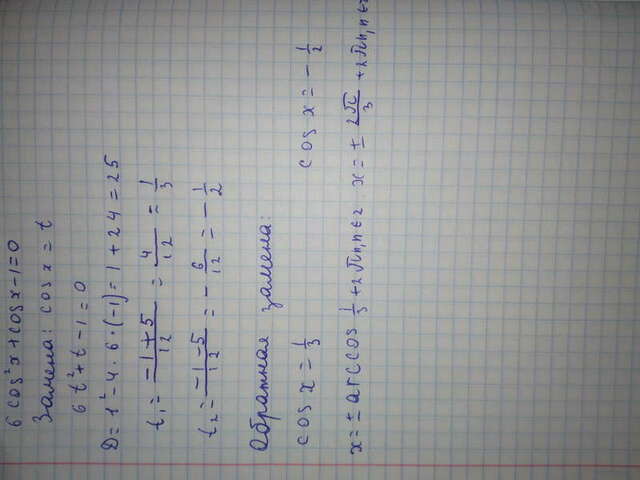 6 cos²x + cos x - 1 = 0
Замена: cos x = t
6 t² + t - 1 = 0
D = 1² - 4 · 6 · (-1) = 1 + 24 = 25
t₁ = (-1 + 5)/12 = 4/12 = 1/3
t₂ = (-1 - 5)/12 = - 6/12 = - 1/2
Обратная замена:
cos x = 1/3 cos x = - 1/2
x = ± arccos 1/3 + 2πn, n ∈ z x = ± 2π/3 + 2πn, n ∈ z